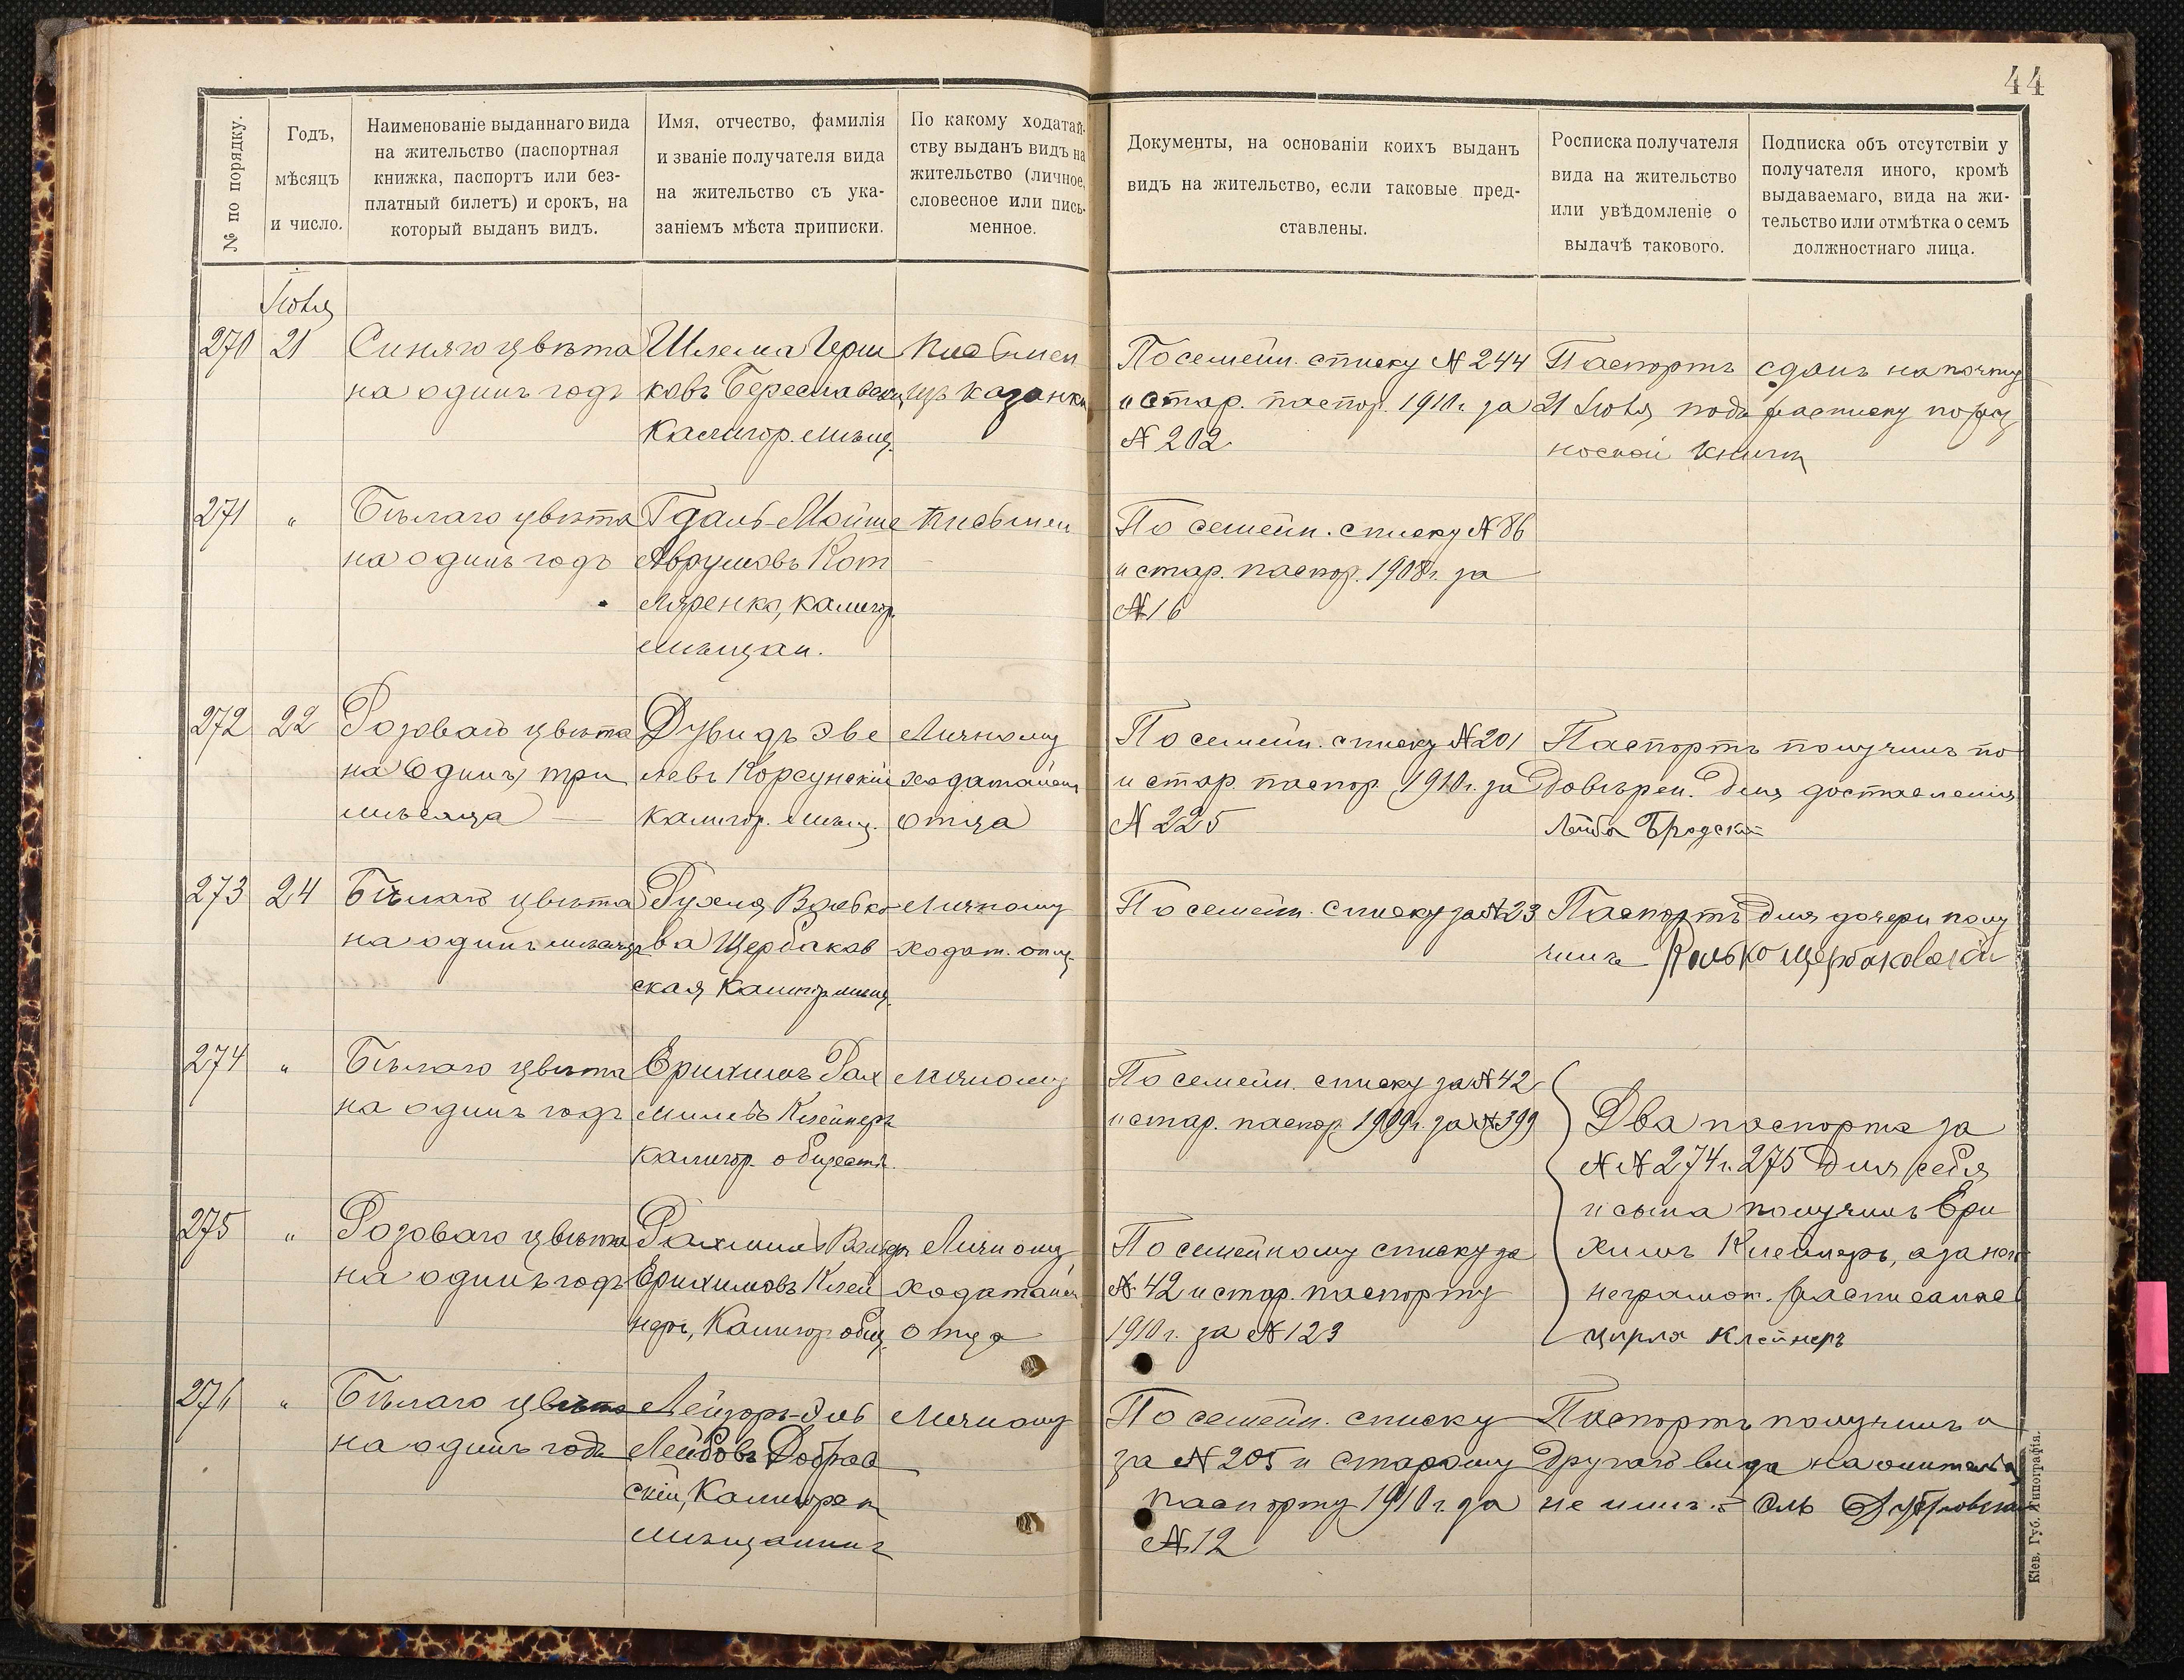 44
№ по порядку.
Годъ,
мѣсяцъ
и число.
Наименованіе выданнаго вида
на жительство (паспортная
книжка, паспортъ или без-
платный билетъ) и срокъ, на
который выданъ видъ.
Имя, отчество, фамилія
и званіе получателя вида
на жительство съ ука-
заніемъ мѣста приписки.
По какому ходатай-
ству выданъ видъ на
жительство (личное,
словесное или пись-
менное.
Документы, на основаніи коихъ выданъ
видъ на жительство, если таковые пред-
ставлены.
Росписка получателя
вида на жительство
или увѣдомленіе о
выдачѣ такового.
Подписка объ отсутствіи у
получателя иного, кромѣ
выдаваемаго, вида на жи-
тельство или отмѣтка о семъ
должностнаго лица.
Іюля
270
21
Синяго цвѣта
на одинъ годъ
Шлема Герш
ковъ Береславск
Калигор. мѣщ.
Письмен
изъ Казанки
По семейн. списку № 244
и стар. паспор. 1910 г. за
№ 202
Паспортъ сданъ на почту
21 Іюля подъ расписку по раз
носной книги
271
"
Бѣлаго цвѣта
на одинъ годъ
Гдаль-Мойше
Аврумовъ Кот
ляренко, Калигор.
мѣщан.
Письмен
По семейн. списку № 86
и стар. паспор. 1908 г. за
№ 16
272
22
Розоваго цвѣта
на Одинъ три
мѣсяца
Дувидъ Эве
левъ Корсунскій
Калигор. мѣщ.
Личному
ходатайст
отца
По семейн. списку № 201
и стар. паспор. 1910 г. за
№ 225
Паспортъ получилъ по
довѣрен. для доставленія
Лейба Бродский
273
24
Бѣлаго цвѣта
на одинъ мѣсяцъ
Рухля Волько
ва Щербаков
ская Калигор. мѣщ.
Личному
ходат. отц.
По семейн. списку за № 23
Паспортъ для дочери полу
чилъ Волько Щербаковскій
274
"
Бѣлаго цвѣта
на одинъ годъ
Ерихимъ Рах
милевъ Клейнеръ
Калигор. обществ.
Личному
По семейн. списку за № 42
и стар. паспор. 1909 г. за № 399
Два паспорта за
№ № 274 и 275 для себя
и сына получилъ Ери
химъ Клейнеръ, а за него
неграмот. расписалась
Цирля Клейнеръ
275
"
Розоваго цвѣта
на одинъ годъ
Рахмиль
Ерихимовъ Клей
неръ, Калигор. общ.
Личному
ходатайст
отца
По семейному списку за
№ 42 и стар. паспорту
1910 г. за № 123
276
"
Бѣлаго цвѣта
на одинъ годъ
Лейзоръ-Эль
Лейбовъ Добров
скій, Калигорск
мѣщанинъ
Личному
По семейн. списку
за № 205 и старому
паспорту 1910 г. за
№ 12
Паспортъ получилъ и
другаго вида на жительст
не имѣю
Эль
Кіев. Губ. Типографія.